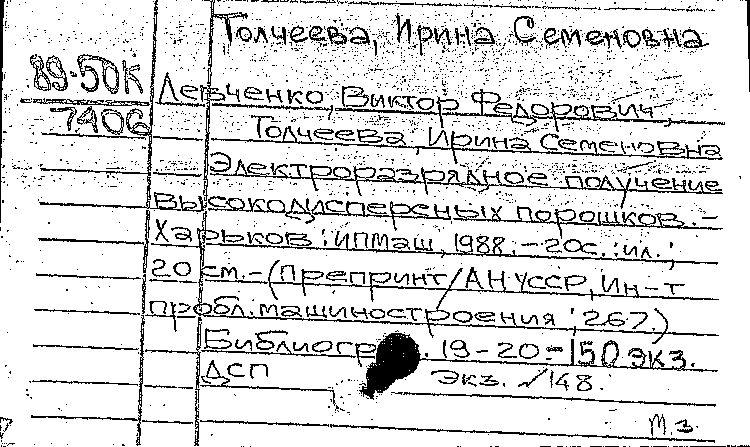 Толчеева, Ирина Семеновна
89-50К
7406
Левченко, Виктор Федорович,
Толчеева, Ирина Семеновна
Электроразрядное получение
высокодисперсных порошков.-
Харьков : ИПМаш, 1988. - 20с. : ил. ;
20 см. - (Препринт / АН УССР, Ин-т
пробл. машиностроения ; 267.)
19-20. - 150 экз.
ДСП
экз. √148.
М.з